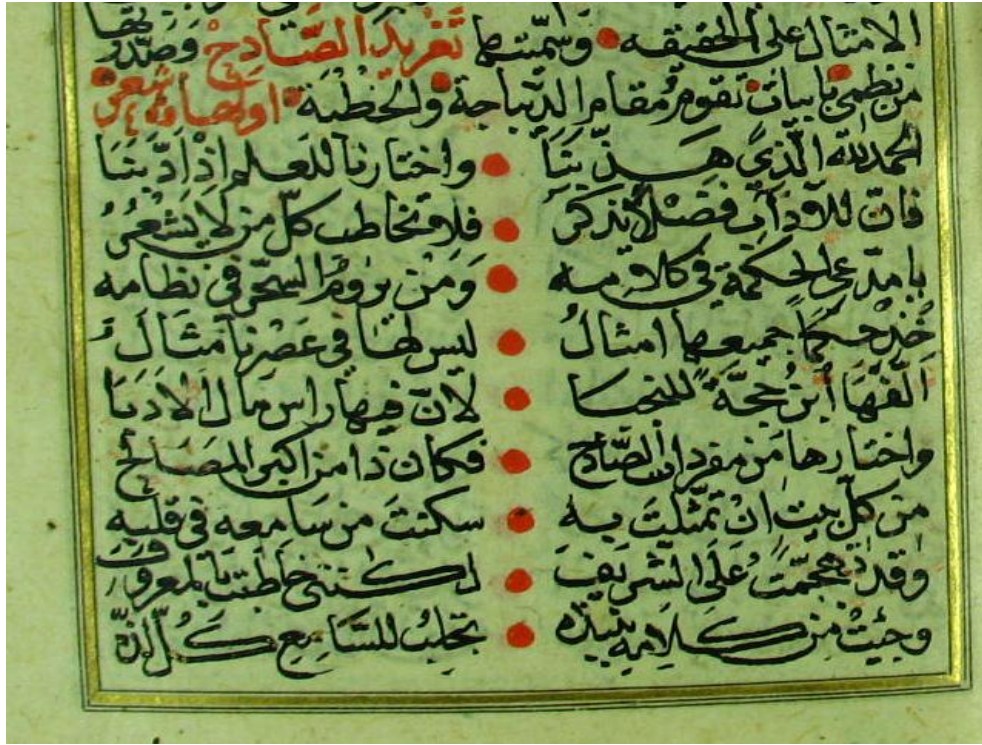 الامثال على الحقيقه وسميتها تغريد الصّادح وصدرتها
من نظمى بابيات تقوم مقام الديباجة والخطبة اولها شعر
الحمد لله الّذى هذّبنا واختارنا للعلم اذ ادّبنا
فان للآداب فضلا يذكر فلا تخاطب كلّ من لا يشعرُ
يا مدّعى الحكمة فى كلامه وَمَنْ يروم السحر فى نظامه
خذ حكمًا جميعها امثالُ ليس لها فى عصرنا مثالُ
الّفها ابن حجّة للنجبا لانّ فيها راس مال الادبا
واختارها من مفردات الصّادح فكان ذا من اكبر المصالح
من كلّ بيت ان تمثّلت به سكنت من سامعه فى قلبه
وقد تهجّمت على الشريف لكننى خاطبت بالمعروف
وجئت من كلامه بنبذه تجلب للسّامع كلّ لذّه